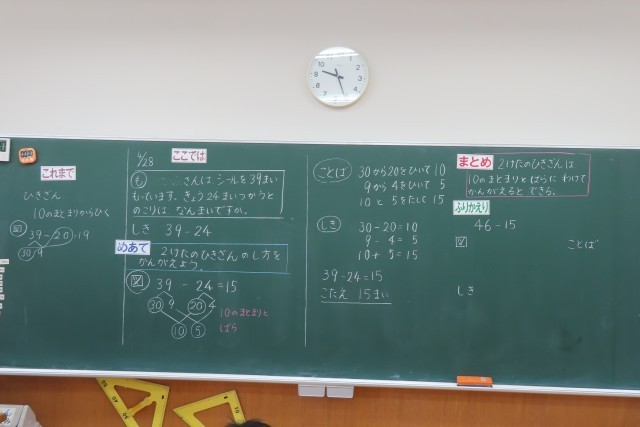 これまで
ひきざん
10のまとまりからひく
図 39-20=19
30 9
4/28 ここでは
も さんは、シールを39まい
もっています。きょう24まいつかうと
のこりは なんまいですか。
しき 39-24
めあて 2けたのひきざんのし方を
かんがえよう。
図 39-24=15
30 9 20 4
10 5
10のまとまりと
ばら
ことば 30から20をひいて10
9から4をひいて 5
10と 5をたして 15
しき 30-20=10
9-4=5
10+5=15
39-24=15
こたえ 15まい
まとめ 2けたのひきざんは
10のまとまりとばらにわけて
かんがえると できる。
ふりかえり
46-15
図 ことば
しき